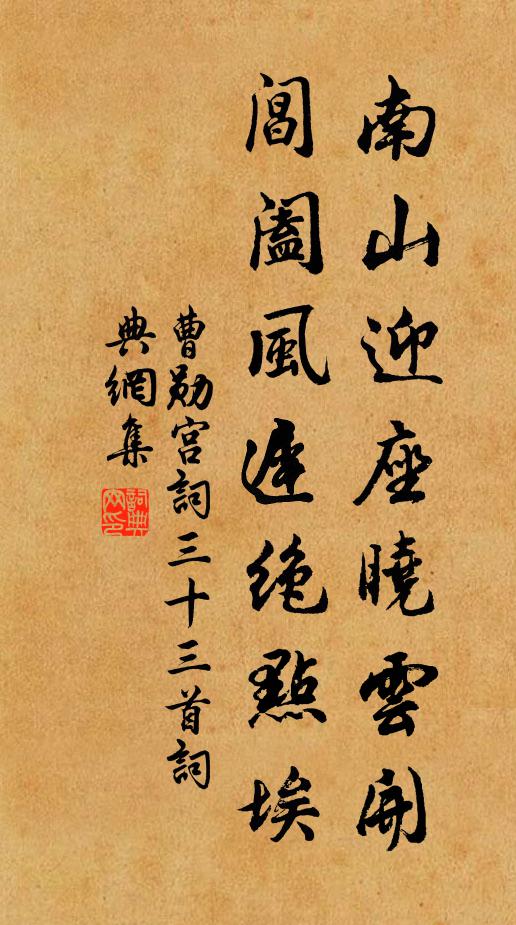 南山迎座曉雲開
閶闔風遲絶點埃
曹勛宮詞三十三首詞
典網集
詞典網印